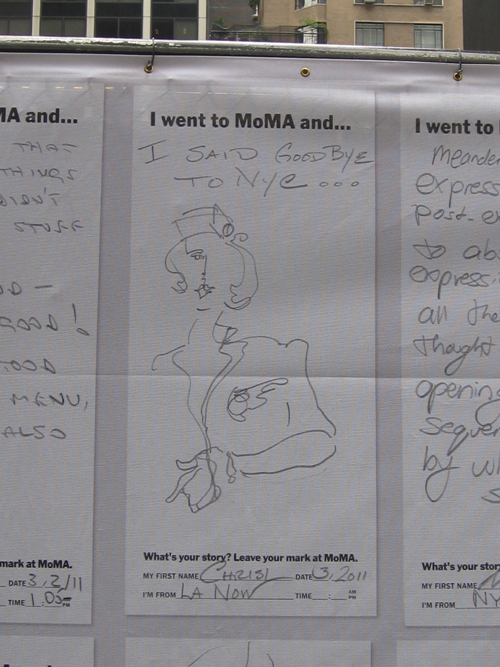 MA and...
THAT
THINGS
DIDN'T
STUFF
OD —
GOOD!
OOD
MENU,
ALSO
mark at MoMA.
DATE 3/2/11
TIME 1:05 PM
I went to MoMA and...
I SAID GOODBYE
TO NYC ...
What's your story? Leave your mark at MoMA.
MY FIRST NAME CHRISL DATE 3, 2011
I'M FROM LA NOW TIME : AM PM
I went to
Meander
express
post-ex
to ab
express.
all the
thought
opening
sequen
by wh
s
What's your story
MY FIRST NAME
I'M FROM NY